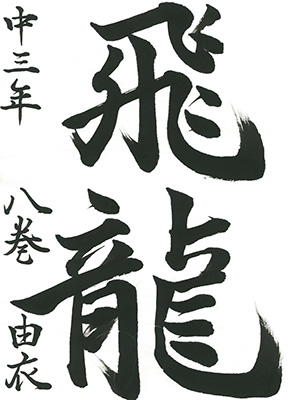 飛龍
中三年 八巻 由衣